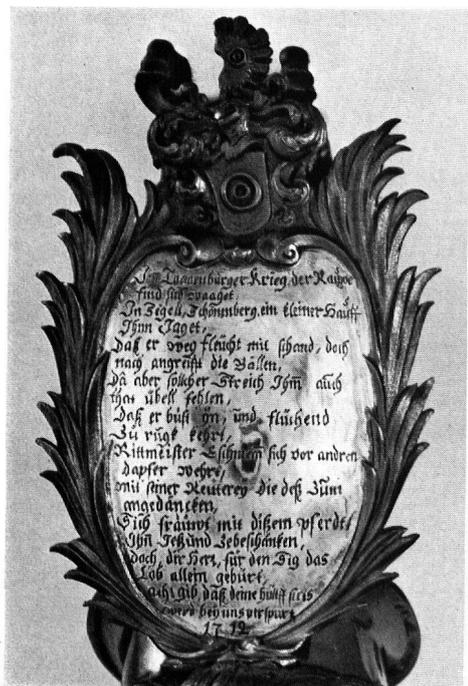 Im Toggenburger Krieg, der
find sich waaget,
In Zigell, Schönnberg, ein kleiner Hauff
Ihnn Jaget,
Daß er weg fleücht mit schand, doch
nach angreifft die Bällen,
Da aber sollcher Streich Ihm auch
that übell fehlen,
Daß er büst ÿn, und flüchend
Zu rugk kehrt,
Rittmeister Eschmann sich vor andren
dapfer wehrt,
mit seiner Reuterey die deß Zum
angedancken,
Sich fräüwt mit dißem pferdt
Ihn Jetzund Zebeschäncken,
doch, dir Herr, für den Sig das
Lob allein gebürt,
ach, gib, daß deine hülff stets
werd beÿ uns verspürt
1712